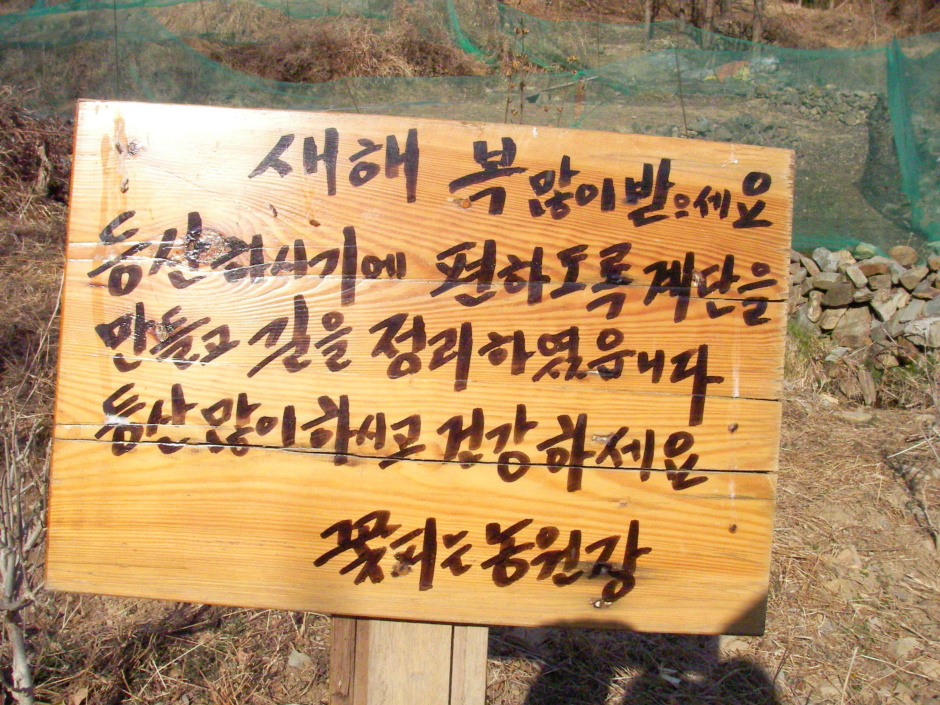 새해 복 많이 받으세요
등산 하시기에 편하도록 계단을
만들고 길을 정리하였읍니다
등산 많이 하시고 건강 하세요
꽃피는 농원장